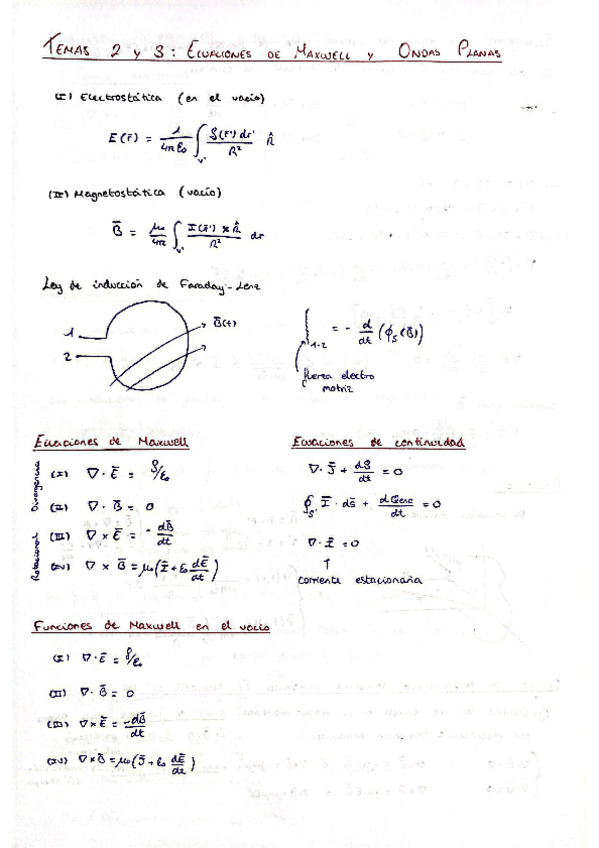 TEMAS 2 y 3: ECUACIONES DE MAXWELL y ONDAS PLANAS
(I) Electrostática (en el vacío)
E(r̄) = 1/4πε₀ ∫v' ρ(r̄') dr'/R² R̂
(II) Magnetostática (vacío)
B̄ = μ₀/4π ∫v' I(r̄') × R̂/R² dr
Ley de inducción de Faraday-Lenz
1
2
B̄(t)
1-2 = - d/dt (ϕs(B̄))
fuerza electro
motriz
Ecuaciones de Maxwell
Divergencia
(I) ∇ · Ē = ρ/ε₀
(II) ∇ · B̄ = 0
Rotacional
(III) ∇ × Ē = - dB̄/dt
(IV) ∇ × B̄ = μ₀(Ī + ε₀ dĒ/dt)
Ecuaciones de continuidad
∇ · J̄ + dρ/dt = 0
∮s Ī · ds̄ + dQenc/dt = 0
∇ · Ī = 0
↑
corriente estacionaria
Funciones de Maxwell en el vacío
(I) ∇ · Ē = ρ/ε₀
(II) ∇ · B̄ = 0
(III) ∇ × Ē = -dB̄/dt
(IV) ∇ × B̄ = μ₀(J̄ + ε₀ dĒ/dt)